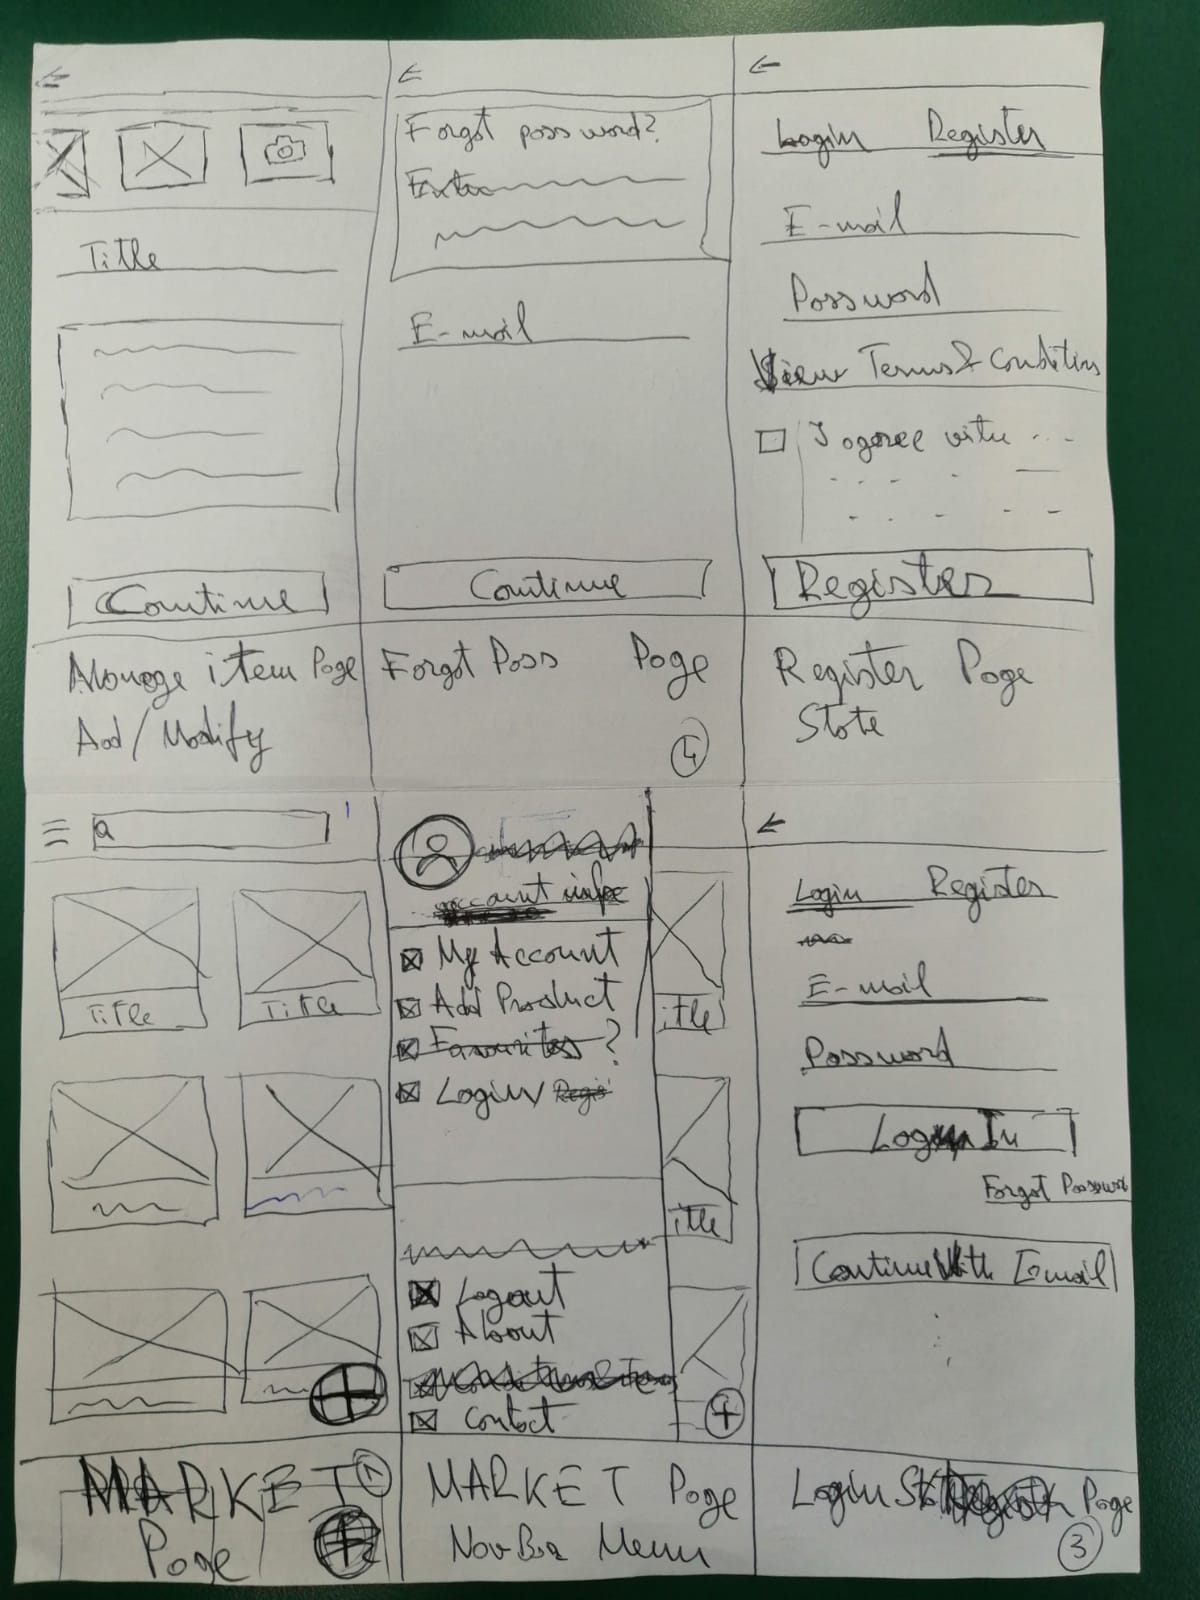 Title
Continue
Manage item Page
Add/Modify
Forgot password?
E-mail
Continue
Forgot Pass Page
4
Login Register
E-mail
Password
View Terms & Conditions
I agree with ...
Register
Register Page
State
Title Title
MARKET 1
Page
account info
My Account
Add Product
Favourites ?
Login/
itle
itle
Logout
About
Contact
MARKET Page
NavBar Menu
Login Register
E-mail
Password
Log In
Forgot Password
Continue With Email
Login Page
3